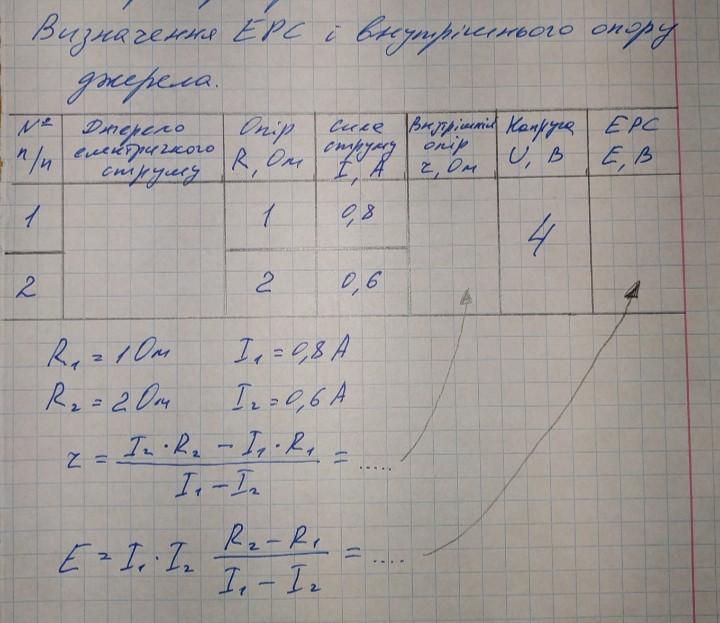 Визначення ЕРС і внутрішнього опору
джерела.
№ п/п | Джерело електричного струму | Опір R, Ом | Сила струму I, А | Внутрішній опір r, Ом | Напруга U, В | ЕРС E, В
1 | 1 | 0,8 | 4
2 | 2 | 0,6
R₁ = 1 Ом I₁ = 0,8 А
R₂ = 2 Ом I₂ = 0,6 А
r = (I₂·R₂ – I₁·R₁) / (I₁ – I₂) = .....
E = I₁·I₂ (R₂ – R₁) / (I₁ – I₂) = ....